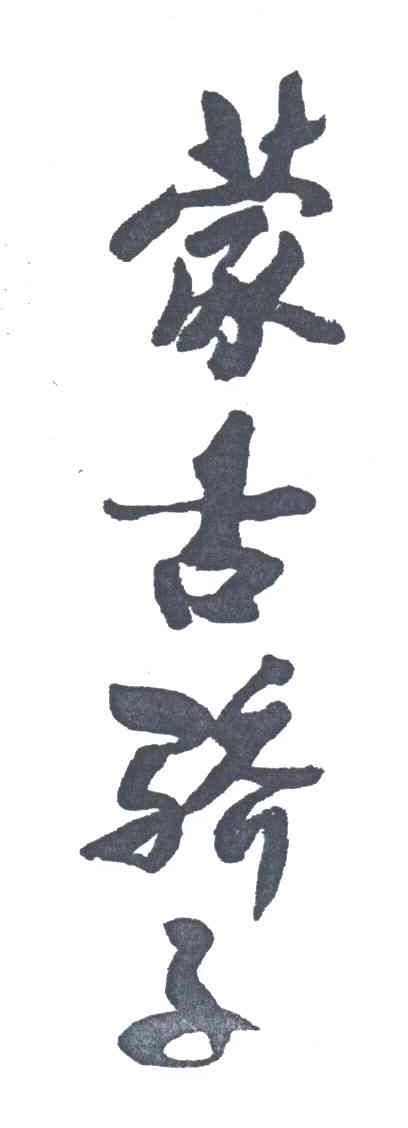 蒙古骄子